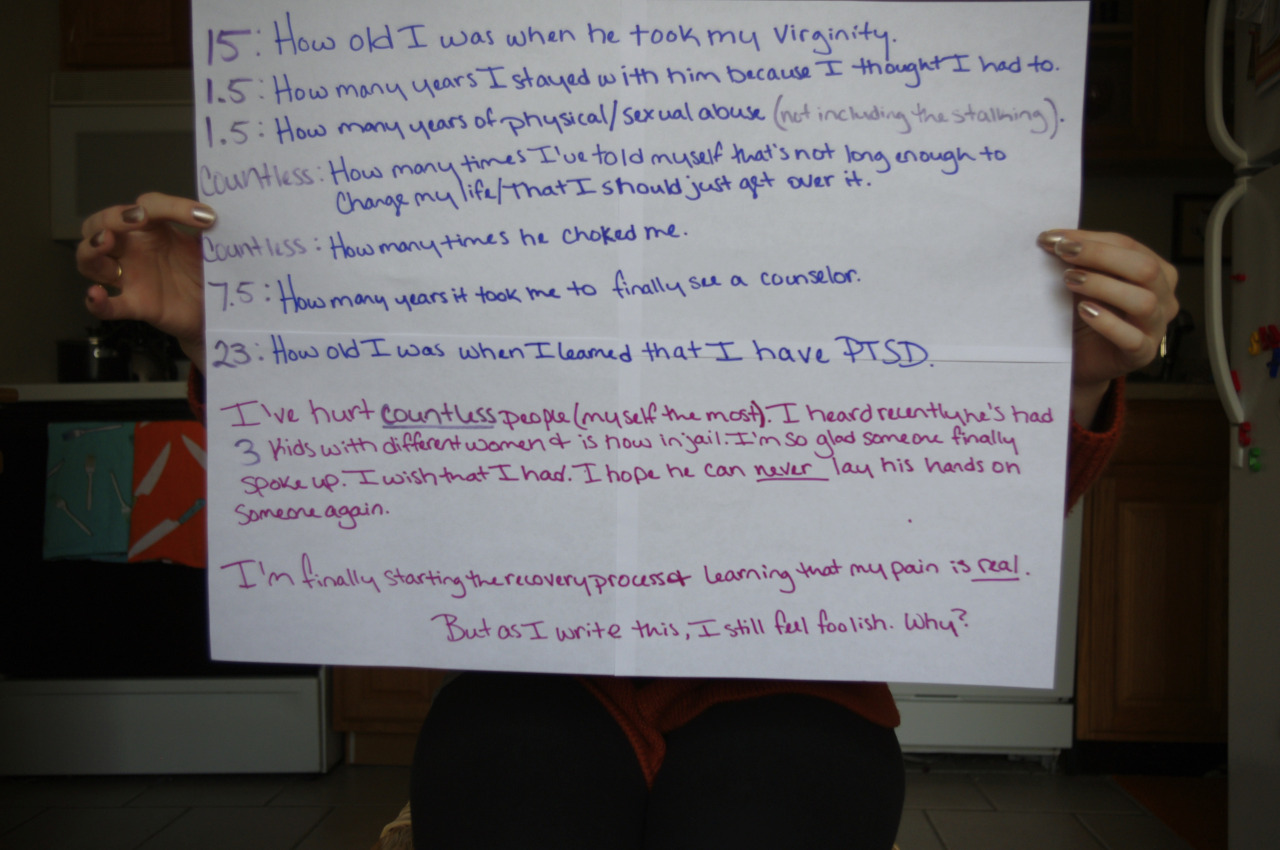 15: How old I was when he took my virginity.
1.5: How many years I stayed with him because I thought I had to.
1.5: How many years of physical/sexual abuse (not including the stalking).
Countless: How many times I've told myself that's not long enough to
change my life/that I should just get over it.
Countless: How many times he choked me.
7.5: How many years it took me to finally see a counselor.
23: How old I was when I learned that I have PTSD.
I've hurt countless people (myself the most). I heard recently he's had
3 kids with different women & is now in jail. I'm so glad someone finally
spoke up. I wish that I had. I hope he can never lay his hands on
someone again.
I'm finally starting the recovery process & learning that my pain is real.
But as I write this, I still feel foolish. Why?